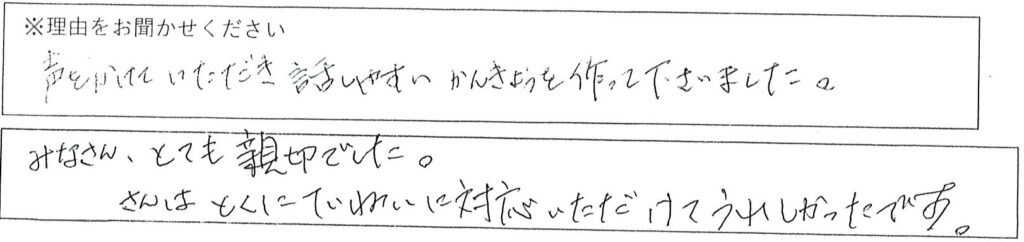 ※理由をお聞かせください
声をかけていただき話しやすいかんきょうを作って下さいました。
みなさん、とても親切でした。
さんはとくにていねいに対応いただけてうれしかったです。